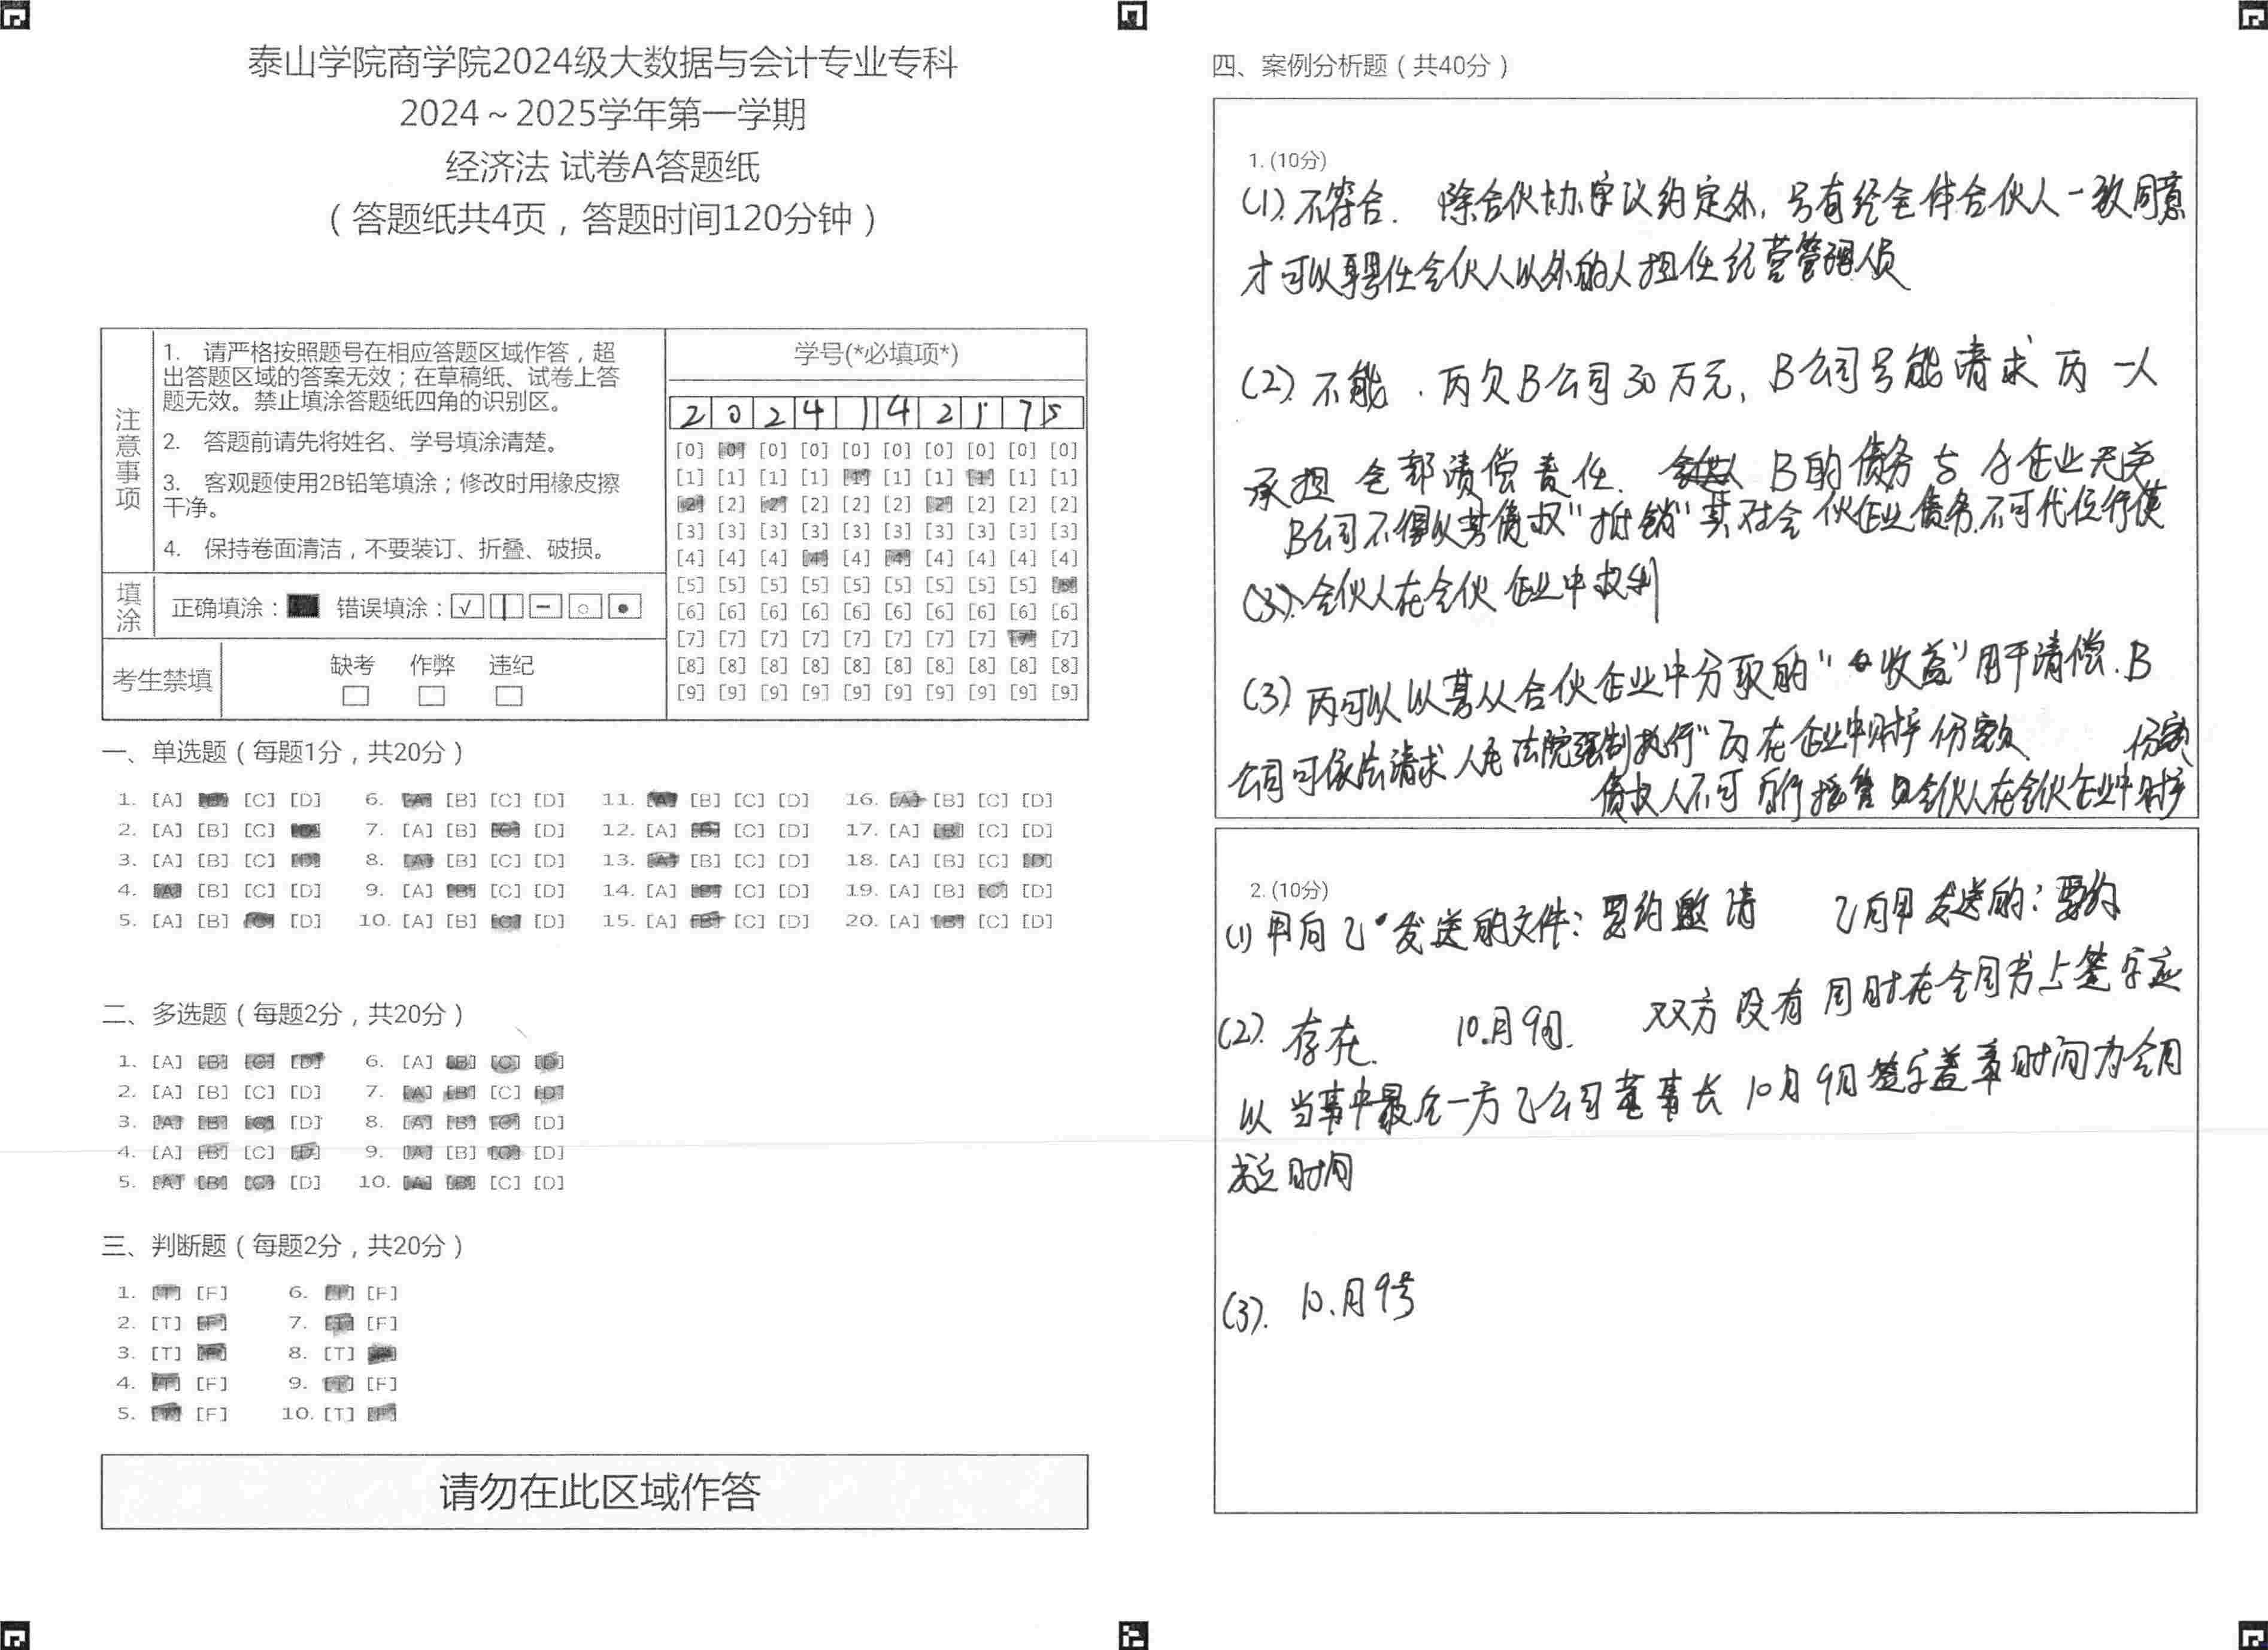 泰山学院商学院2024级大数据与会计专业专科
2024～2025学年第一学期
经济法 试卷A答题纸
（答题纸共4页，答题时间120分钟）
注意事项
1. 请严格按照题号在相应答题区域作答，超
出答题区域的答案无效；在草稿纸、试卷上答
题无效。禁止填涂答题纸四角的识别区。
2. 答题前请先将姓名、学号填涂清楚。
3. 客观题使用2B铅笔填涂；修改时用橡皮擦
干净。
4. 保持卷面清洁，不要装订、折叠、破损。
填涂
正确填涂： 错误填涂：
考生禁填
缺考 作弊 违纪
学号(*必填项*)
2 0 2 4 1 4 2 1 7 5
[0] [0] [0] [0] [0] [0] [0] [0] [0] [0]
[1] [1] [1] [1] [1] [1] [1] [1] [1] [1]
[2] [2] [2] [2] [2] [2] [2] [2] [2] [2]
[3] [3] [3] [3] [3] [3] [3] [3] [3] [3]
[4] [4] [4] [4] [4] [4] [4] [4] [4] [4]
[5] [5] [5] [5] [5] [5] [5] [5] [5] [5]
[6] [6] [6] [6] [6] [6] [6] [6] [6] [6]
[7] [7] [7] [7] [7] [7] [7] [7] [7] [7]
[8] [8] [8] [8] [8] [8] [8] [8] [8] [8]
[9] [9] [9] [9] [9] [9] [9] [9] [9] [9]
一、单选题（每题1分，共20分）
1. [A] [B] [C] [D] 6. [A] [B] [C] [D] 11. [A] [B] [C] [D] 16. [A] [B] [C] [D]
2. [A] [B] [C] [D] 7. [A] [B] [C] [D] 12. [A] [B] [C] [D] 17. [A] [B] [C] [D]
3. [A] [B] [C] [D] 8. [A] [B] [C] [D] 13. [A] [B] [C] [D] 18. [A] [B] [C] [D]
4. [A] [B] [C] [D] 9. [A] [B] [C] [D] 14. [A] [B] [C] [D] 19. [A] [B] [C] [D]
5. [A] [B] [C] [D] 10. [A] [B] [C] [D] 15. [A] [B] [C] [D] 20. [A] [B] [C] [D]
二、多选题（每题2分，共20分）
1. [A] [B] [C] [D] 6. [A] [B] [C] [D]
2. [A] [B] [C] [D] 7. [A] [B] [C] [D]
3. [A] [B] [C] [D] 8. [A] [B] [C] [D]
4. [A] [B] [C] [D] 9. [A] [B] [C] [D]
5. [A] [B] [C] [D] 10. [A] [B] [C] [D]
三、判断题（每题2分，共20分）
1. [T] [F] 6. [T] [F]
2. [T] [F] 7. [T] [F]
3. [T] [F] 8. [T] [F]
4. [T] [F] 9. [T] [F]
5. [T] [F] 10. [T] [F]
请勿在此区域作答
四、案例分析题（共40分）
1. (10分)
(1). 不符合. 除合伙协议约定外, 只有经全体合伙人一致同意
才可以聘任合伙人以外的人担任经营管理人员
(2). 不能. 丙欠B公司30万元, B公司只能请求丙一人
承担全部清偿责任. B的债务与合企业无关
B公司不得以其债权"抵销"其对合伙企业债务.不可代位行使
(3). 合伙人在合伙企业中权利
(3) 丙可以以其从合伙企业中分取的"收益"用于清偿. B
公司可依法请求人民法院强制执行"丙在企业中财产份额
债权人不可自行接管合伙人在合伙企业中财产
份额
2. (10分)
(1) 甲向乙发送的文件: 要约邀请 乙向甲发送的: 要约
(2). 存在. 10.月9日. 双方没有同时在合同书上签字应
以当事中最后一方乙公司董事长10月9日签字盖章时间为合同
成立时间
(3). 10.月9号